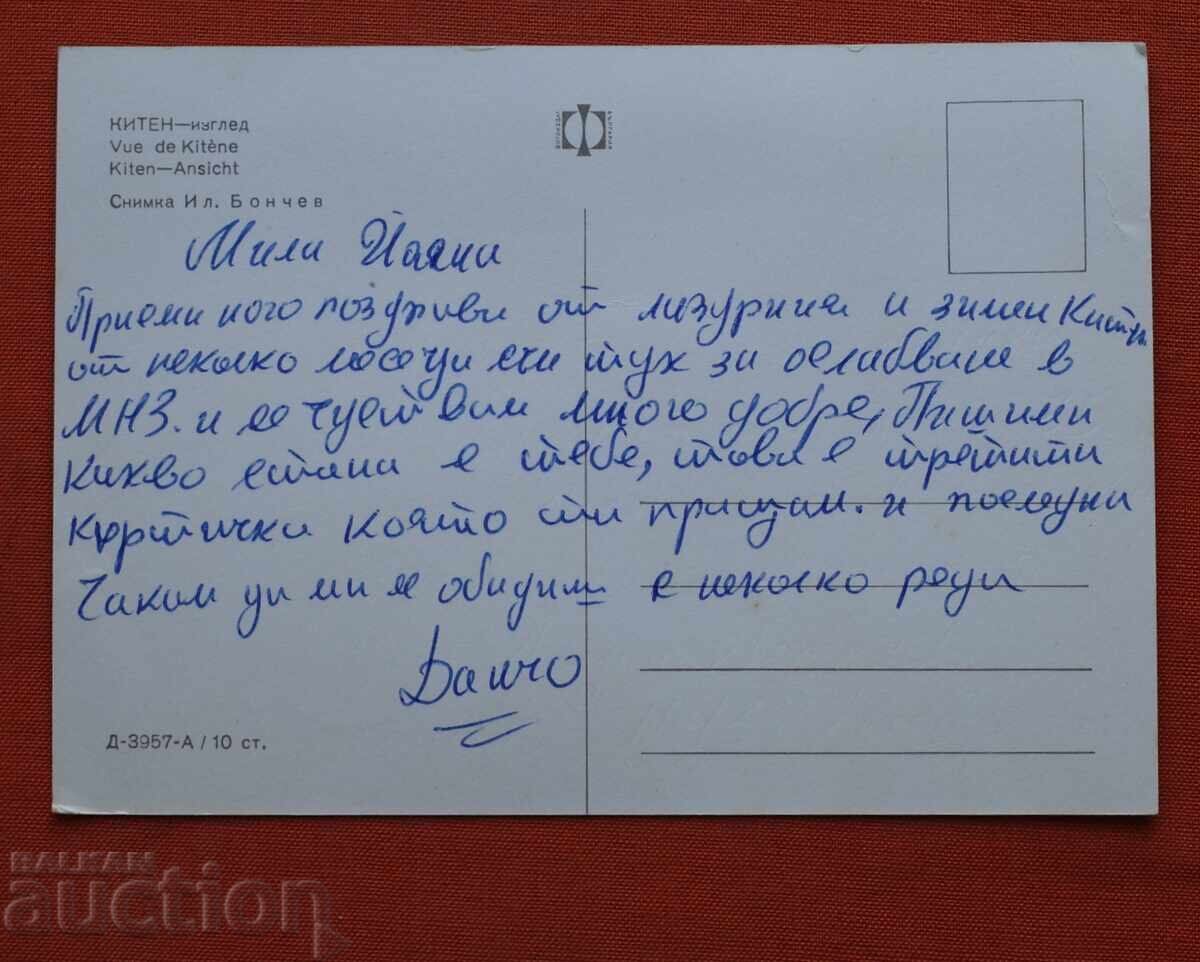 КИТЕН—изглед
Vue de Kitène
Kiten—Ansicht
Снимка Ил. Бончев
БЪЛГАРСКИ
Мили
Приеми много поздрави от лазурния и зимен Китен
от неколко месеци съм тук за отслабване в
МНЗ. и се чуствам много добре, Пиши ми
Какво стана с тебе, това е третити
картички която ти пращам. и последни
Чакам да ми се обидиш с неколко реди
Данчо
Д-3957-А / 10 ст.
BALKAN
auction